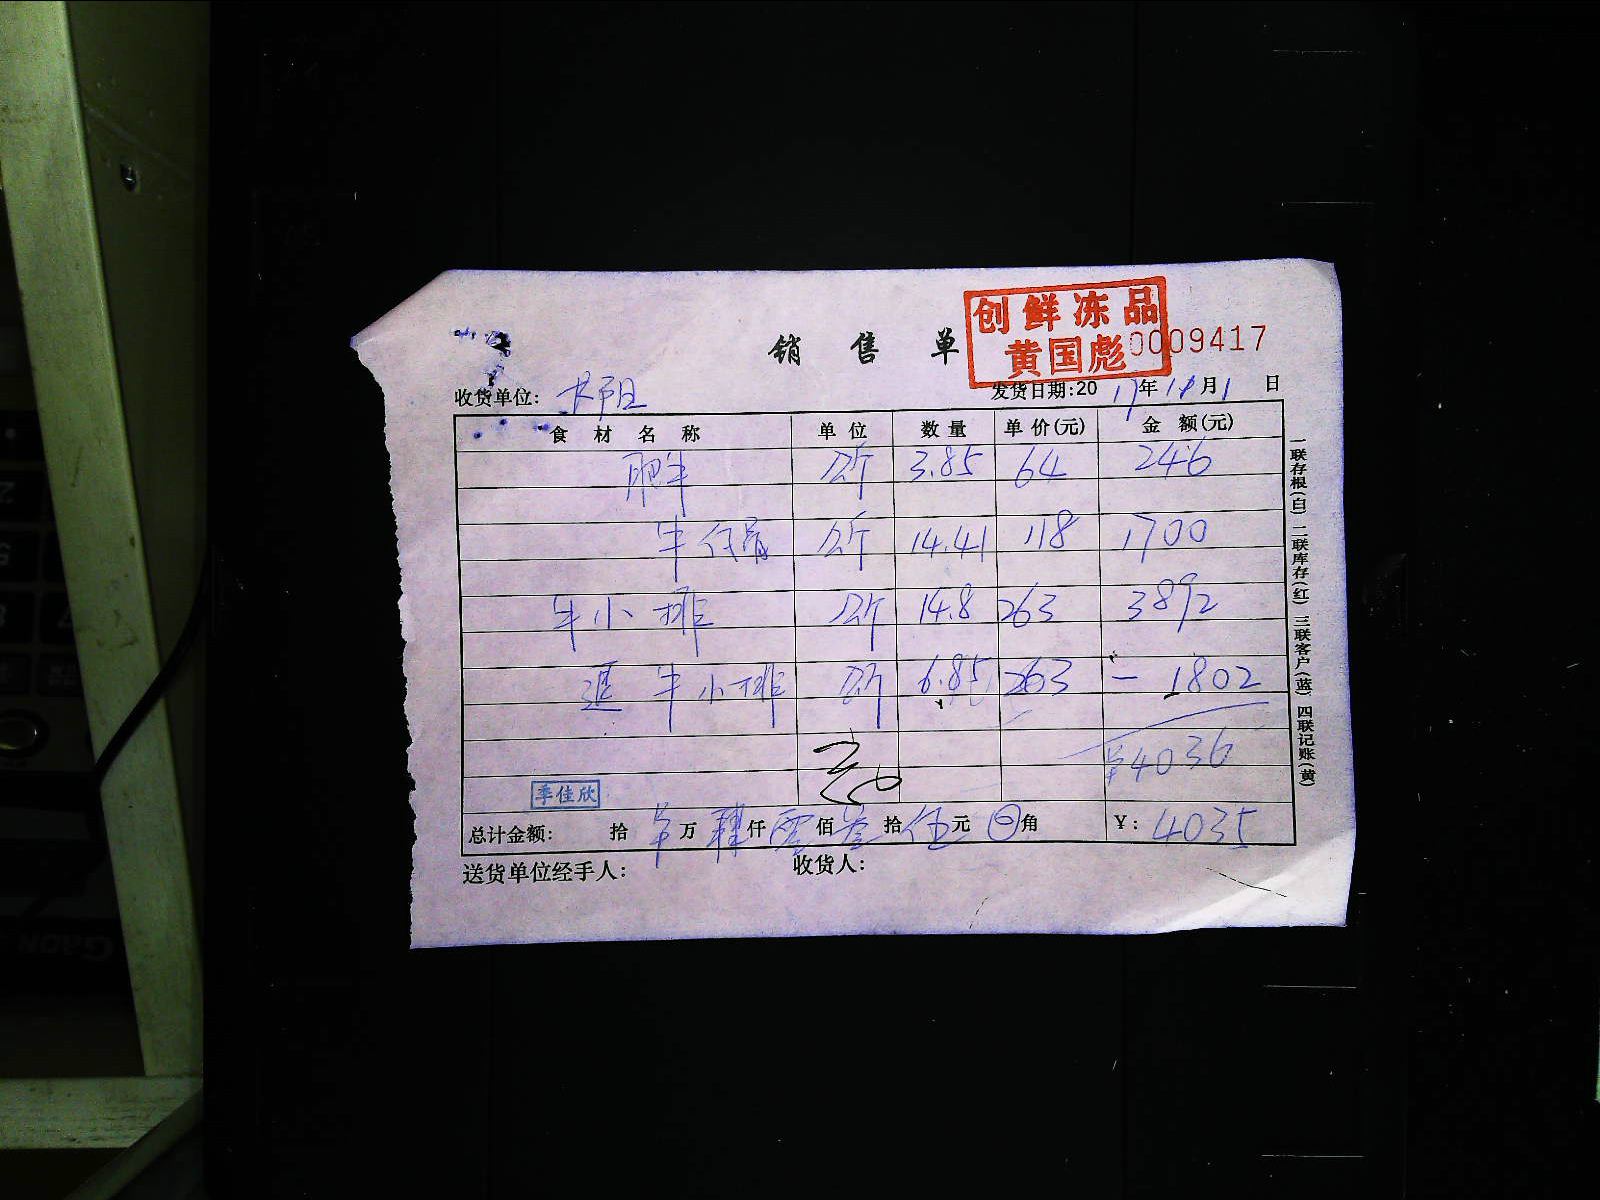 创鲜冻品
黄国彪
销售单
0009417
收货单位:
发货日期:20 17年 11月 1日
食材名称 单位 数量 单价(元) 金额(元)
肥牛 公斤 3.85 64 246
牛仔骨 公斤 14.41 118 1700
牛小排 公斤 14.8 263 3892
退 牛小排 公斤 6.85 263 - 1802
¥4036
季佳欣
总计金额: 拾 万 肆仟零佰叁拾伍元 角 ¥: 4035
送货单位经手人: 收货人:
一联存根(白) 二联库存(红) 三联客户(蓝) 四联记账(黄)